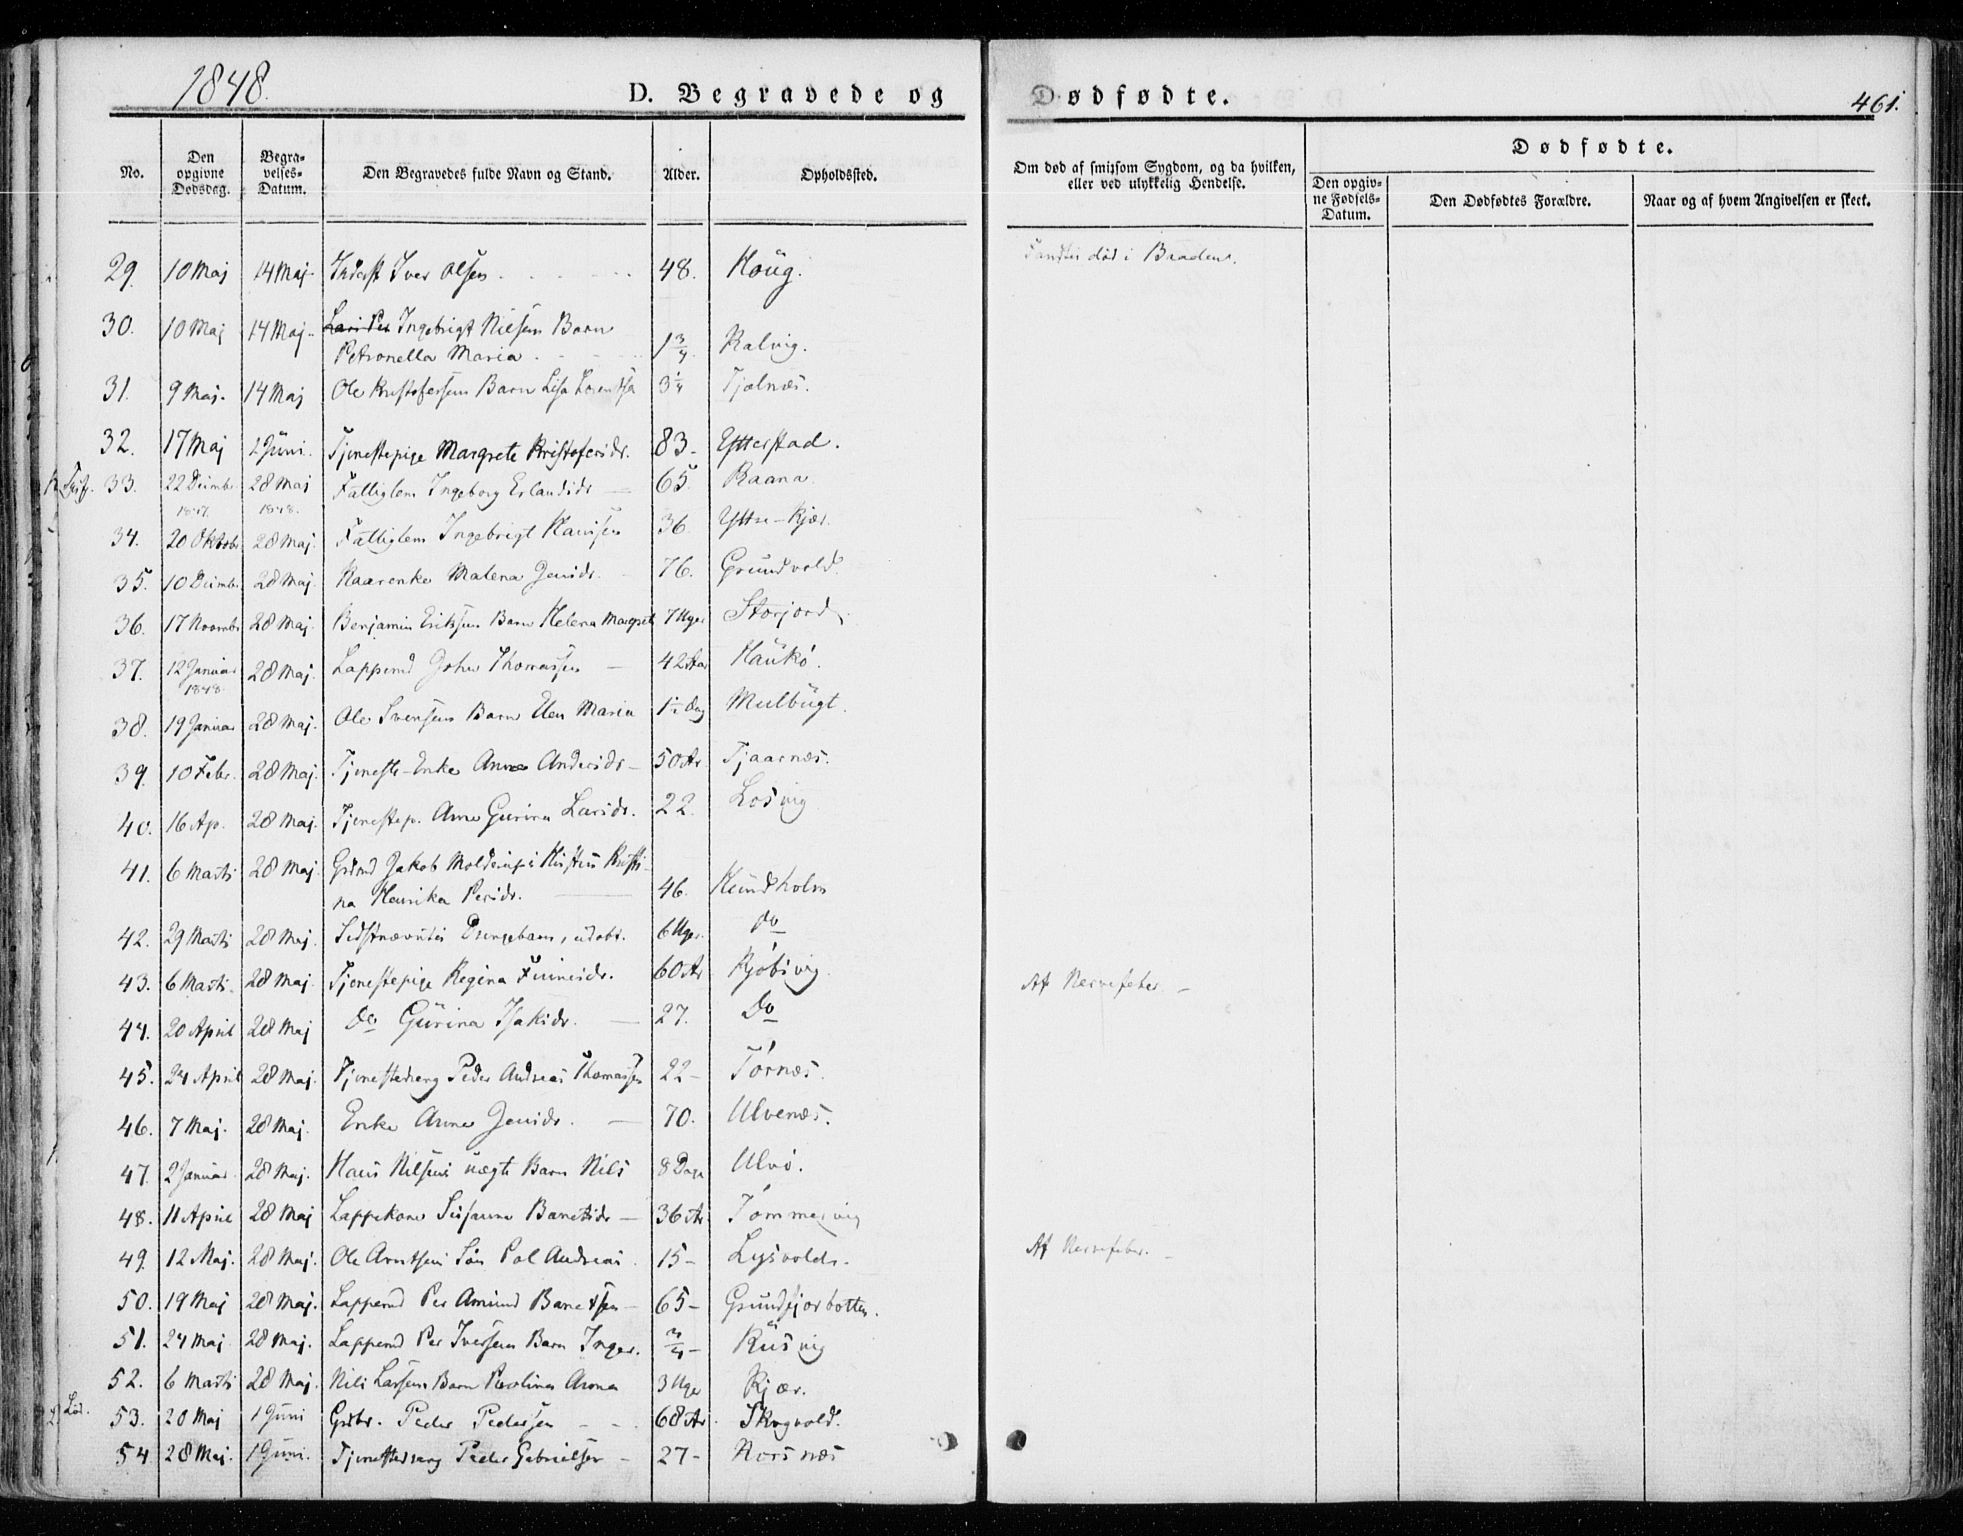 1848.
D. Begravede og
Dødfødte.
461.
No.
Den opgivne Dødsdag.
Begravelses-Datum.
Den Begravedes fulde Navn og Stand.
Alder.
Opholdssted.
Om død af smitsom Sygdom, og da hvilken, eller ved ulykkelig Hendelse.
Dødfødte.
Den opgivne Fødsels-Datum.
Den Dødfødtes Forældre.
Naar og af hvem Angivelsen er skeet.
29. 10 Maj 14 Maj Inderst Iver Olsen 48. Houg. Fandtes død i Baaden.
30. 10 Maj 14 Maj Ingebrigt Nilsens Barn
Petronella Maria 1 3/4 Ralvig.
31. 9 Maj 14 Maj Ole Kristofersens Barn Lisa 3 1/4 Tjælnæs.
32. 17 Maj 1 Juni Tjenestepige Margrete Kristofersdr. 83 Ytterstad.
33. 22 Decimbr 28 Maj Fattiglem Ingeborg Erlandsdr 65. Raana
1847. 1848.
34. 20 Oktobr 28 Maj Fattiglem Ingebrigt Hansen 36. Yttre-Kjær.
35. 10 Decimbr 28 Maj Kaarenke Malena Jensdr. 76. Grundvold.
36. 17 Novmbr 28 Maj Benjamin Eriksens Barn Helena Margret 7 Uger Storjord
37. 12 Januar 28 Maj Lappemd John Thomassen 42 Aar Haukø.
1848
38. 19 Januar 28 Maj. Ole Svensens Barn Elen Maria 1 1/2 Dag Mulbugt.
39. 10 Febr. 28 Maj. Tjeneste-Enke Anne Andersdr 50 Ar Tjaarnæs.
40. 16 Ap. 28 Maj. Tjenestep. Anne Gurina Larsdr. 22. Losvig
41. 6 Marts 28 Maj. Grdmd Jakob Hustru Kristi-
na Henrika Persdr. 46. Hundholm
42. 29 Marts 28 Maj. Sidstnævntes Drengebarn, udøbt. 6 Uger. Do
43. 6 Marts 28 Maj. Tjenestepige Regina 60 Ar Kjøbsvig. Af Nervefeber
44. 20 April 28 Maj Do Gurina Isaksdr. 27. Do
45. 24 April 28 Maj. Tjenestedreng Peder Andreas Thomassen 22 Tørnæs.
46. 7 Maj. 28 Maj. Enke Anne Jensdr. 70. Ulvenæs.
47. 2 Januar 28 Maj. Hans Nilsens uægte Barn Nils 8 Dage Ulvø.
48. 11 April 28 Maj Lappekone Susanne 36 Ar Tømmervig
49. 12 Maj. 28 Maj. Ole Arntsens Søn Pol Andreas 15 Lysvold. Af Nervefeber.
50. 19 Maj 28 Maj. Lappemd Per Amund 65 Grundfjorbotten.
51. 24 Maj 28 Maj. Lappemd Per Iversens Barn Inger. 3/4 Rusvig
52. 6 Marts 28 Maj. Nils Larsens Barn Anna 3 Uger Kjær.
53. 20 Maj 1 Juni Grdbr. Peder Pedersen 68 Ar Skogvold.
54 28 Maj. 1 Juni. Tjenestedreng Peder Gabrielsen 27 Korsnæs